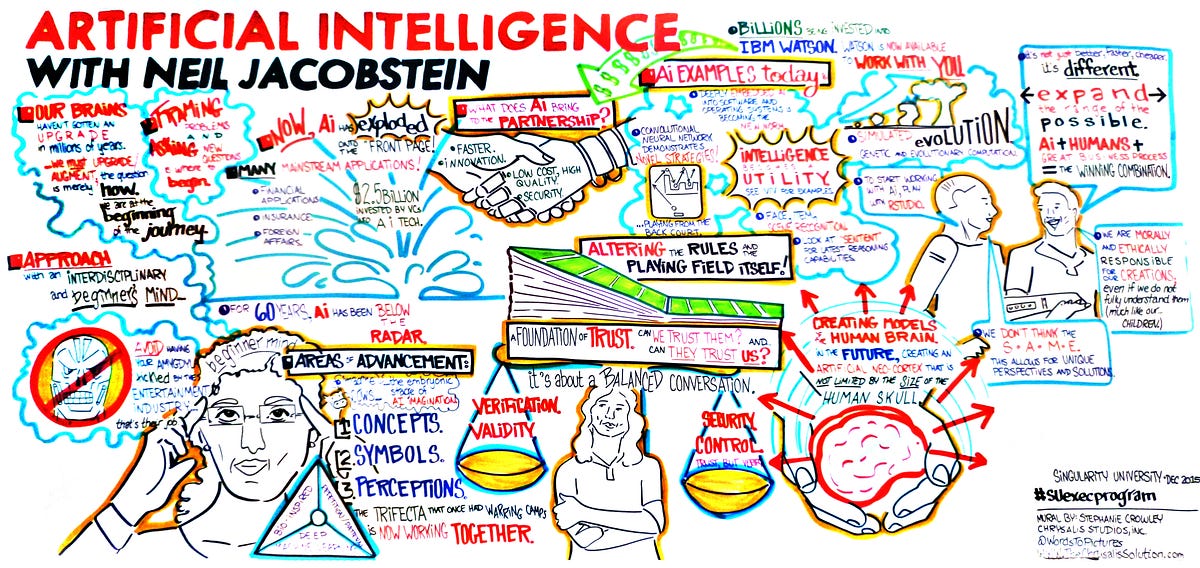 ARTIFICIAL INTELLIGENCE
WITH NEIL JACOBSTEIN
OUR BRAINS
HAVEN'T GOTTEN AN
UPGRADE
in millions of years.
...we MUST UPGRADE/
AUGMENT, the question
is merely how.
we are at the
beginning
of the journey.
FRAMING
PROBLEMS
AND
ASKING NEW
QUESTIONS
is where to
begin.
NOW, Ai HAS exploded
ONTO THE "FRONT PAGE!"
MANY MAINSTREAM APPLICATIONS!
FINANCIAL
APPLICATIONS
INSURANCE
FOREIGN
AFFAIRS.
$2.5BILLION
INVESTED BY VCs
Ai TECH.
APPROACH
with an INTERDISCIPLINARY
and beginner's MIND
FOR 60 YEARS, Ai HAS BEEN BELOW
THE
RADAR.
AVOID HAVING
YOUR AMYGDALA
BY THE
ENTERTAINMENT
INDUSTRY
that's their job
beginner mind
AREAS of ADVANCEMENT:
the embryonic
stage of
AI IMAGINATION
1 CONCEPTS.
2 SYMBOLS.
3 PERCEPTIONS.
THE TRIFECTA THAT ONCE HAD WARRING CAMPS
IS NOW WORKING TOGETHER.
BIO-INSPIRED
DEEP
MACHINE LEARNING
WHAT DOES Ai BRING
TO THE PARTNERSHIP?
FASTER.
INNOVATION.
LOW COST, HIGH
QUALITY.
SECURITY.
BILLIONS BEING INVESTED INTO
IBM WATSON. WATSON IS NOW AVAILABLE
TO WORK WITH YOU
Ai EXAMPLES today
DEEPLY EMBEDDED Ai
INTO SOFTWARE AND
OPERATING SYSTEMS is
BECOMING THE
NEW NORM
CONVOLUTIONAL
NEURAL NETWORK
DEMONSTRATES
NOVEL STRATEGIES!
...PLAYING FROM THE
BACK COURT.
INTELLIGENCE
BECOMES
UTILITY
SEE VIV FOR EXAMPLES
FACE, ITEM,
SCENE RECOGNITION
LOOK AT "SENTIENT"
FOR LATEST REASONING
CAPABILITIES.
SIMULATED
evoLUTION
GENETIC AND EVOLUTIONARY COMPUTATION.
TO START WORKING
WITH Ai, PLAY
with RSTUDIO.
it's not just better, faster, cheaper,
it's different
expand
the range of the
possible.
Ai + HUMANS +
GREAT BUSINESS PROCESS
= THE WINNING COMBINATION.
WE ARE MORALLY
AND ETHICALLY
RESPONSIBLE
FOR OUR CREATIONS,
even if we do not
fully understand them
(much like our
CHILDREN.)
WE DON'T THINK THE
S•A•M•E.
THIS ALLOWS FOR UNIQUE
PERSPECTIVES AND SOLUTIONS
ALTERING THE RULES AND THE
PLAYING FIELD iTSELF!
A FOUNDATION OF TRUST. CAN WE TRUST THEM? AND
CAN THEY TRUST US?
it's about a BALANCED CONVERSATION.
VERIFICATION.
VALIDITY.
SECURITY
CONTROL.
TRUST, BUT VERIFY
CREATING MODELS
OF THE HUMAN BRAIN.
IN THE FUTURE, CREATING AN
ARTIFICIAL NEO-CORTEX THAT IS
NOT LIMITED BY THE SIZE OF THE
HUMAN SKULL
SINGULARITY UNIVERSITY•DEC 2015
#SUexecprogram
MURAL BY: STEPHANIE CROWLEY
CHRYSALIS STUDIOS, INC.
@WordsToPictures
www.TheChrysalisSolution.com